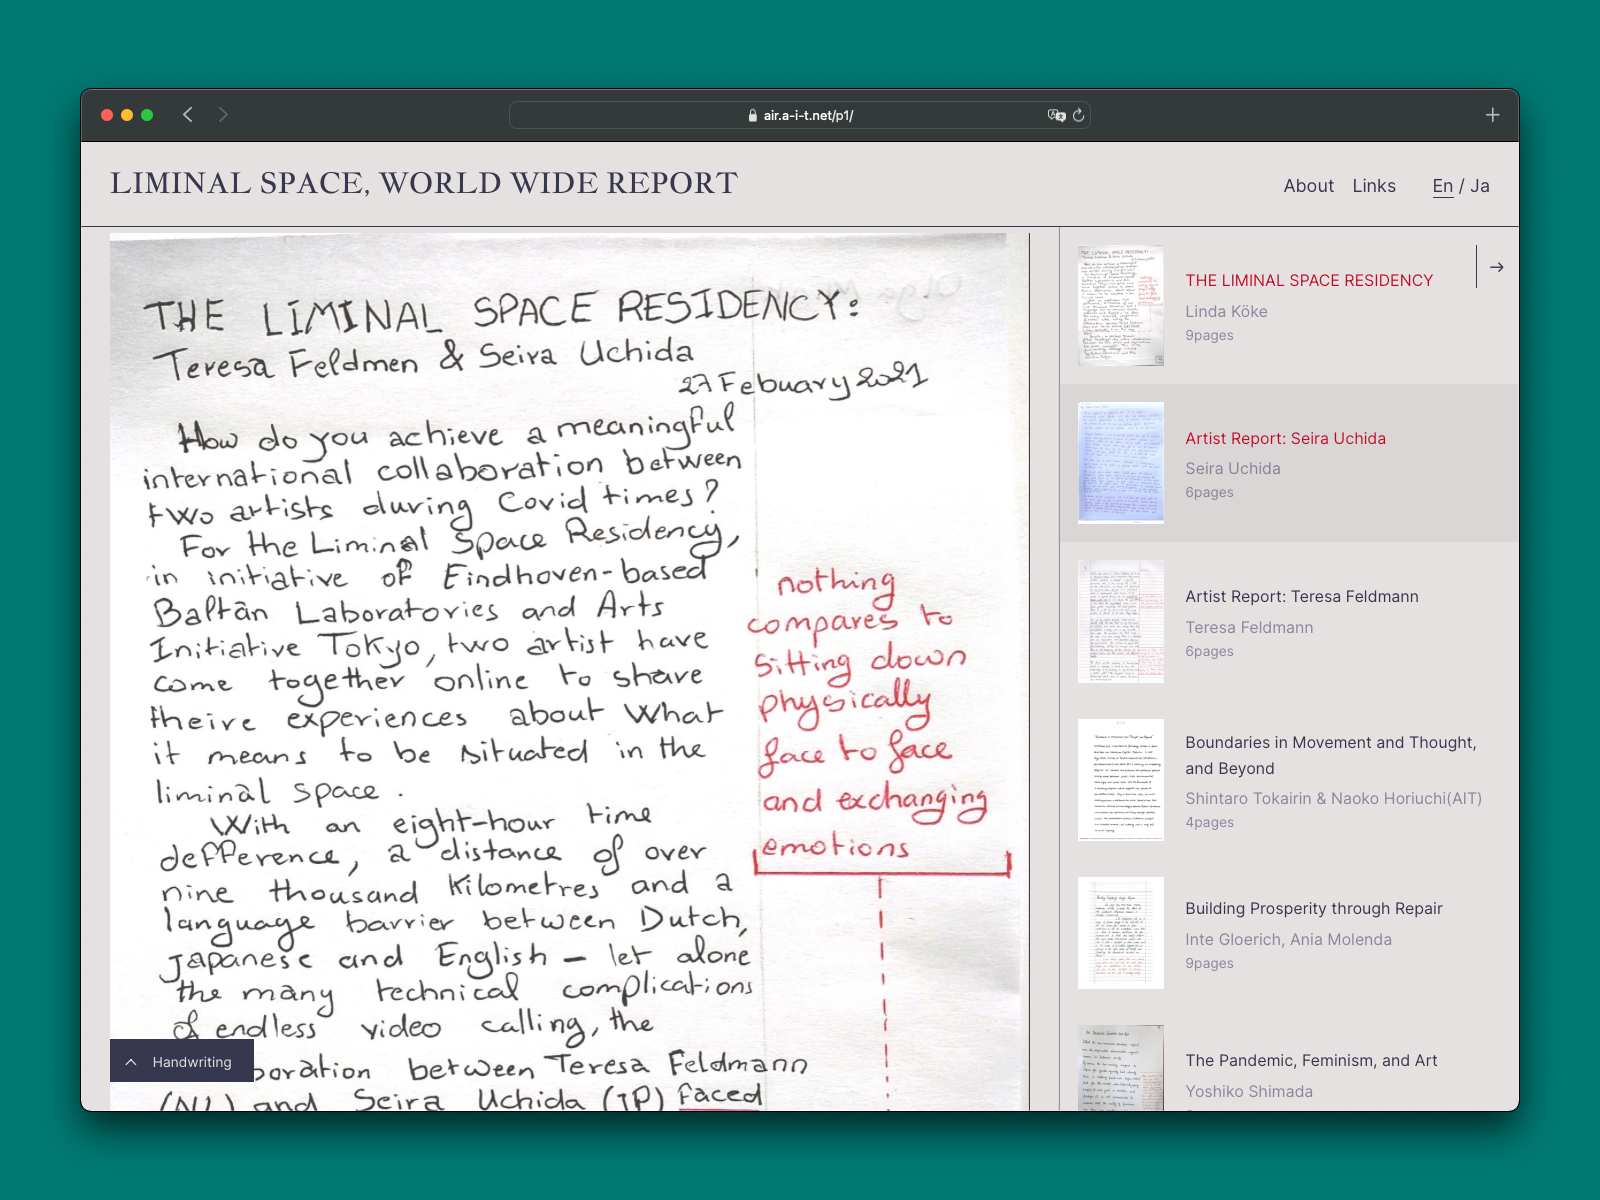 air.a-i-t.net/p1/
LIMINAL SPACE, WORLD WIDE REPORT
About Links En / Ja
THE LIMINAL SPACE RESIDENCY:
Teresa Feldmen & Seira Uchida
27 Febuary 2021
How do you achieve a meaningful
international collaboration between
two artists during Covid times?
For the Liminal Space Residency,
in initiative of Eindhoven-based
Baltan Laboratories and Arts
Initiative Tokyo, two artist have
come together online to share
theire experiences about What
it means to be situated in the
liminal space.
With an eight-hour time
defference, a distance of over
nine thousand kilometres and a
language barrier between Dutch,
Japanese and English – let alone
the many technical complications
of endless video calling, the
boration between Teresa Feldmann
(NL) and Seira Uchida (JP) faced
nothing
compares to
sitting down
physically
face to face
and exchanging
emotions
Handwriting
THE LIMINAL SPACE RESIDENCY
Linda Köke
9pages
Artist Report: Seira Uchida
Seira Uchida
6pages
Artist Report: Teresa Feldmann
Teresa Feldmann
6pages
Boundaries in Movement and Thought,
and Beyond
Shintaro Tokairin & Naoko Horiuchi(AIT)
4pages
Building Prosperity through Repair
Inte Gloerich, Ania Molenda
9pages
The Pandemic, Feminism, and Art
Yoshiko Shimada